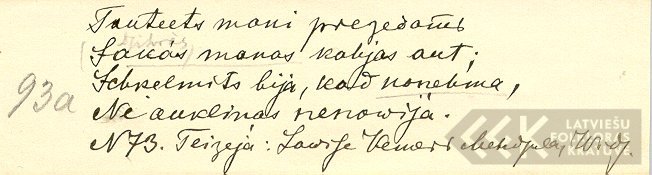 Tauteets mani prezedams
Sakās manas kahjas aut;
Schkelmits bija, kad nonehma,
Ne auklinas nenowija.
93a
N73. Teizeja: Lawise
LATVIEŠU FOLKLORAS KRĀTUVE